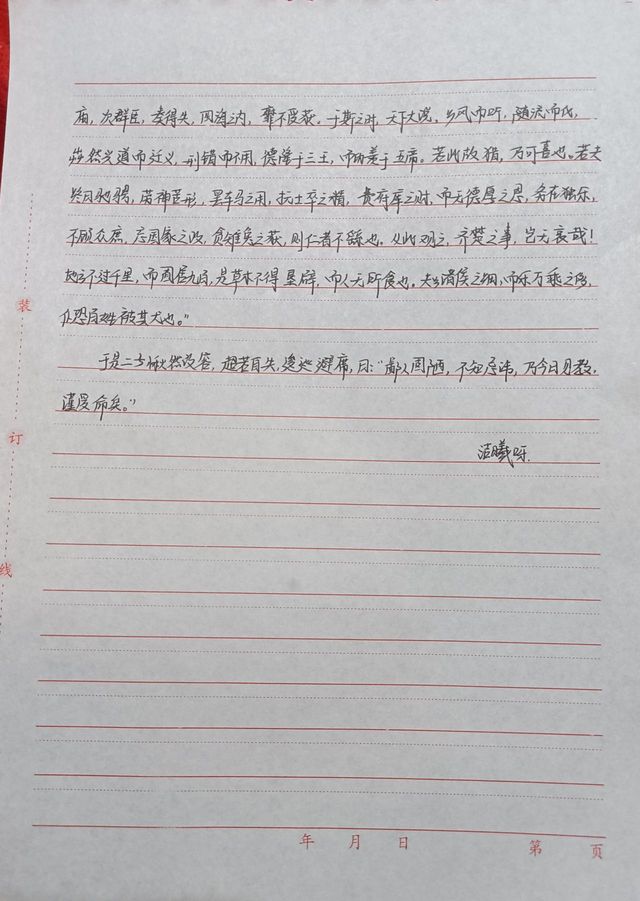 庙，次群臣，奏得失，四海之内，靡不受获，于斯之时，天下大说。乡风而听，随流而化，
芔然兴道而迁义，刑错而不用，德隆于三王，而功羡于五帝。若此故猎，乃可喜也。若夫
终日驰骋，劳神苦形，罢车马之用，抏士卒之精，费府库之财，而无德厚之恩，务在独乐，
不顾众庶，忘国家之政，贪雉兔之获，则仁者不繇也。从此观之，齐楚之事，岂不哀哉！
地方不过千里，而囿居九百，是草木不得垦辟，而人无所食也。夫以诸侯之细，而乐万乘之侈，
仆恐百姓被其尤也。”
于是二子愀然改容，超若自失，逡巡避席，曰：“鄙人固陋，不知忌讳，乃今日见教，
谨受命矣。”
洁曦呀.
装
订
线
年 月 日
第 页